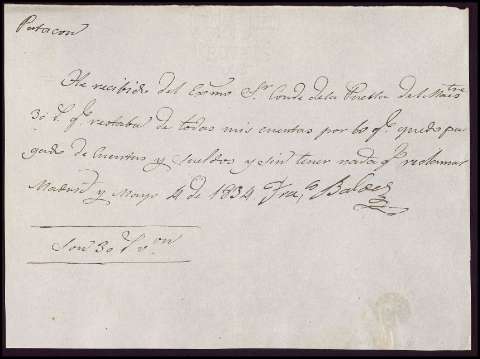 He recibido del Exmo Sr Conde dela Puebla del Maestre
30 rs qe restaba de todas mis cuentas por lo qe quedo pa
gado de Cuentas y Sueldos y sin tener nada qe reclamar
Madrid y Mayo 4 de 1834 Franco
Son 30 rs von